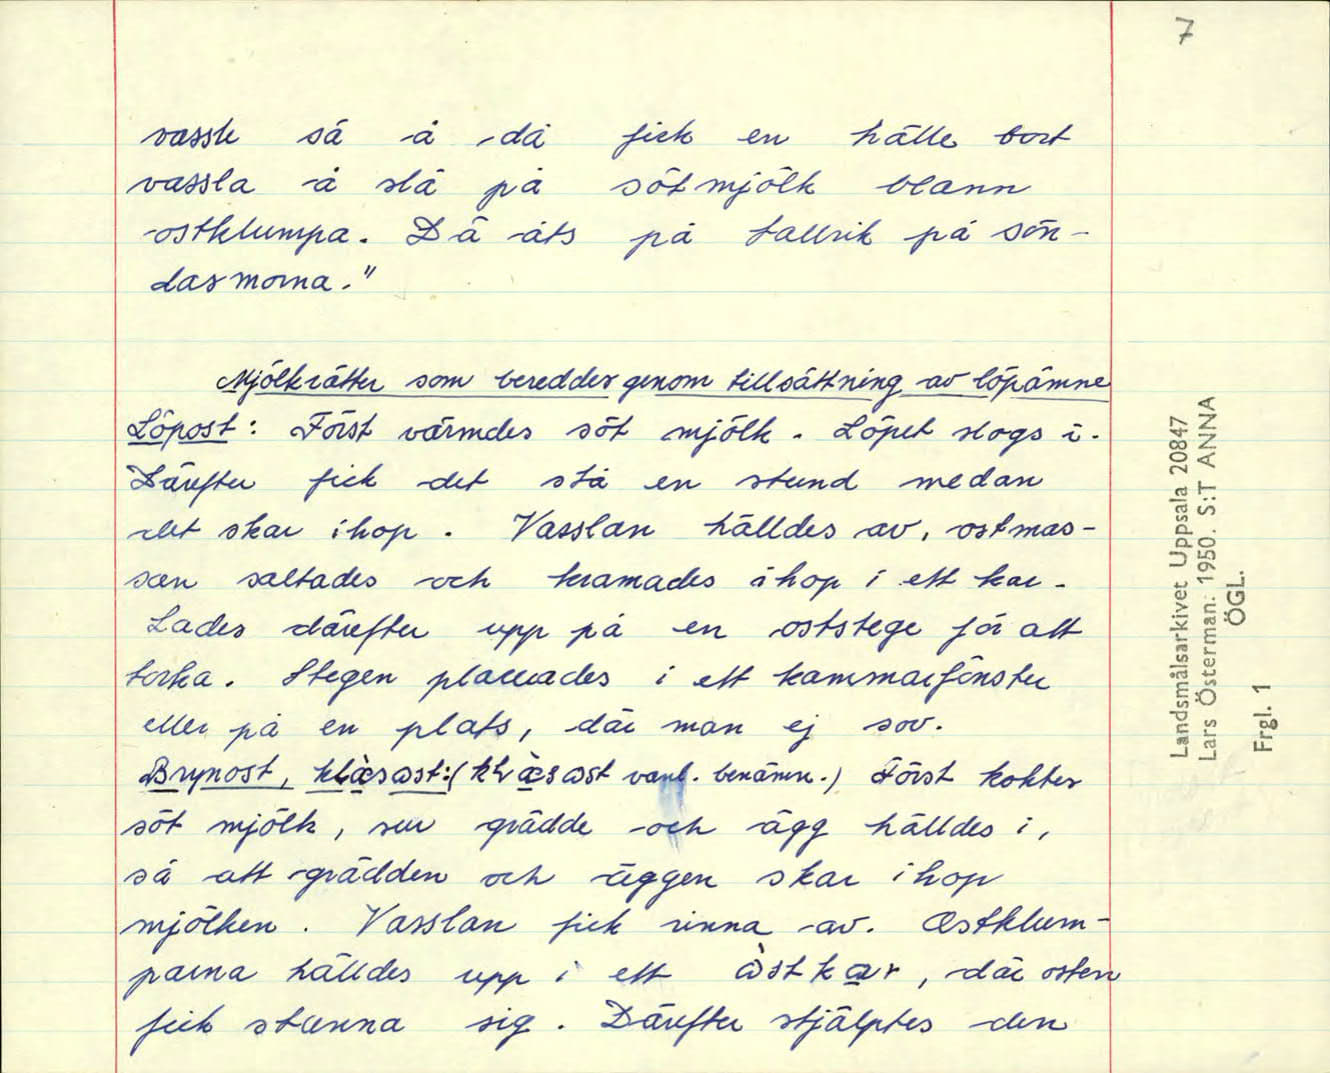 7
vassle så å då fick en hälle bort
vassla å slå på sötmjölk blann
ostklumpa. Dä åts på tallrik på sön-
dasmorna."
Mjölkrätter som bereddes genom tillsättning av löpämne
Löpost: Först värmdes söt mjölk. Löpet slogs i.
Därefter fick det stå en stund medan
det skar ihop. Vasslan hälldes av, ostmas-
san saltades och kramades ihop i ett kar.
Lades därefter upp på en oststege för att
torka. Stegen placerades i ett kammarfönster
eller på en plats, där man ej sov.
Brynost, vanl. benämn.) Först koktes
söt mjölk, sur grädde och ägg hälldes i,
så att grädden och äggen skar ihop
mjölken. Vasslan fick rinna av. Ostklum-
parna hälldes upp i ett , där osten
fick stanna sig. Därefter stjälptes den
Landsmålsarkivet Uppsala 20847
Lars Österman. 1950. S:T ANNA
ÖGL.
Frgl. 1